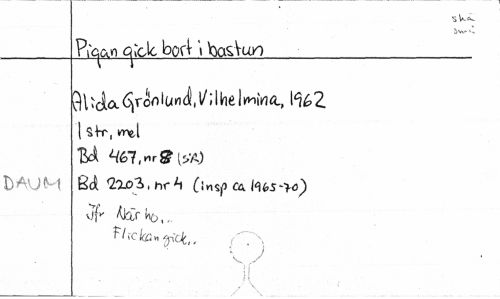 skä
små
Pigan gick bort i bastun
Alida Grönlund, Vilhelmina, 1962
1 str, mel
Bd 467, nr 8 (SR)
DAUM Bd 2203, nr 4 (insp ca 1965-70)
Jfr När ho...
Flickan gick..